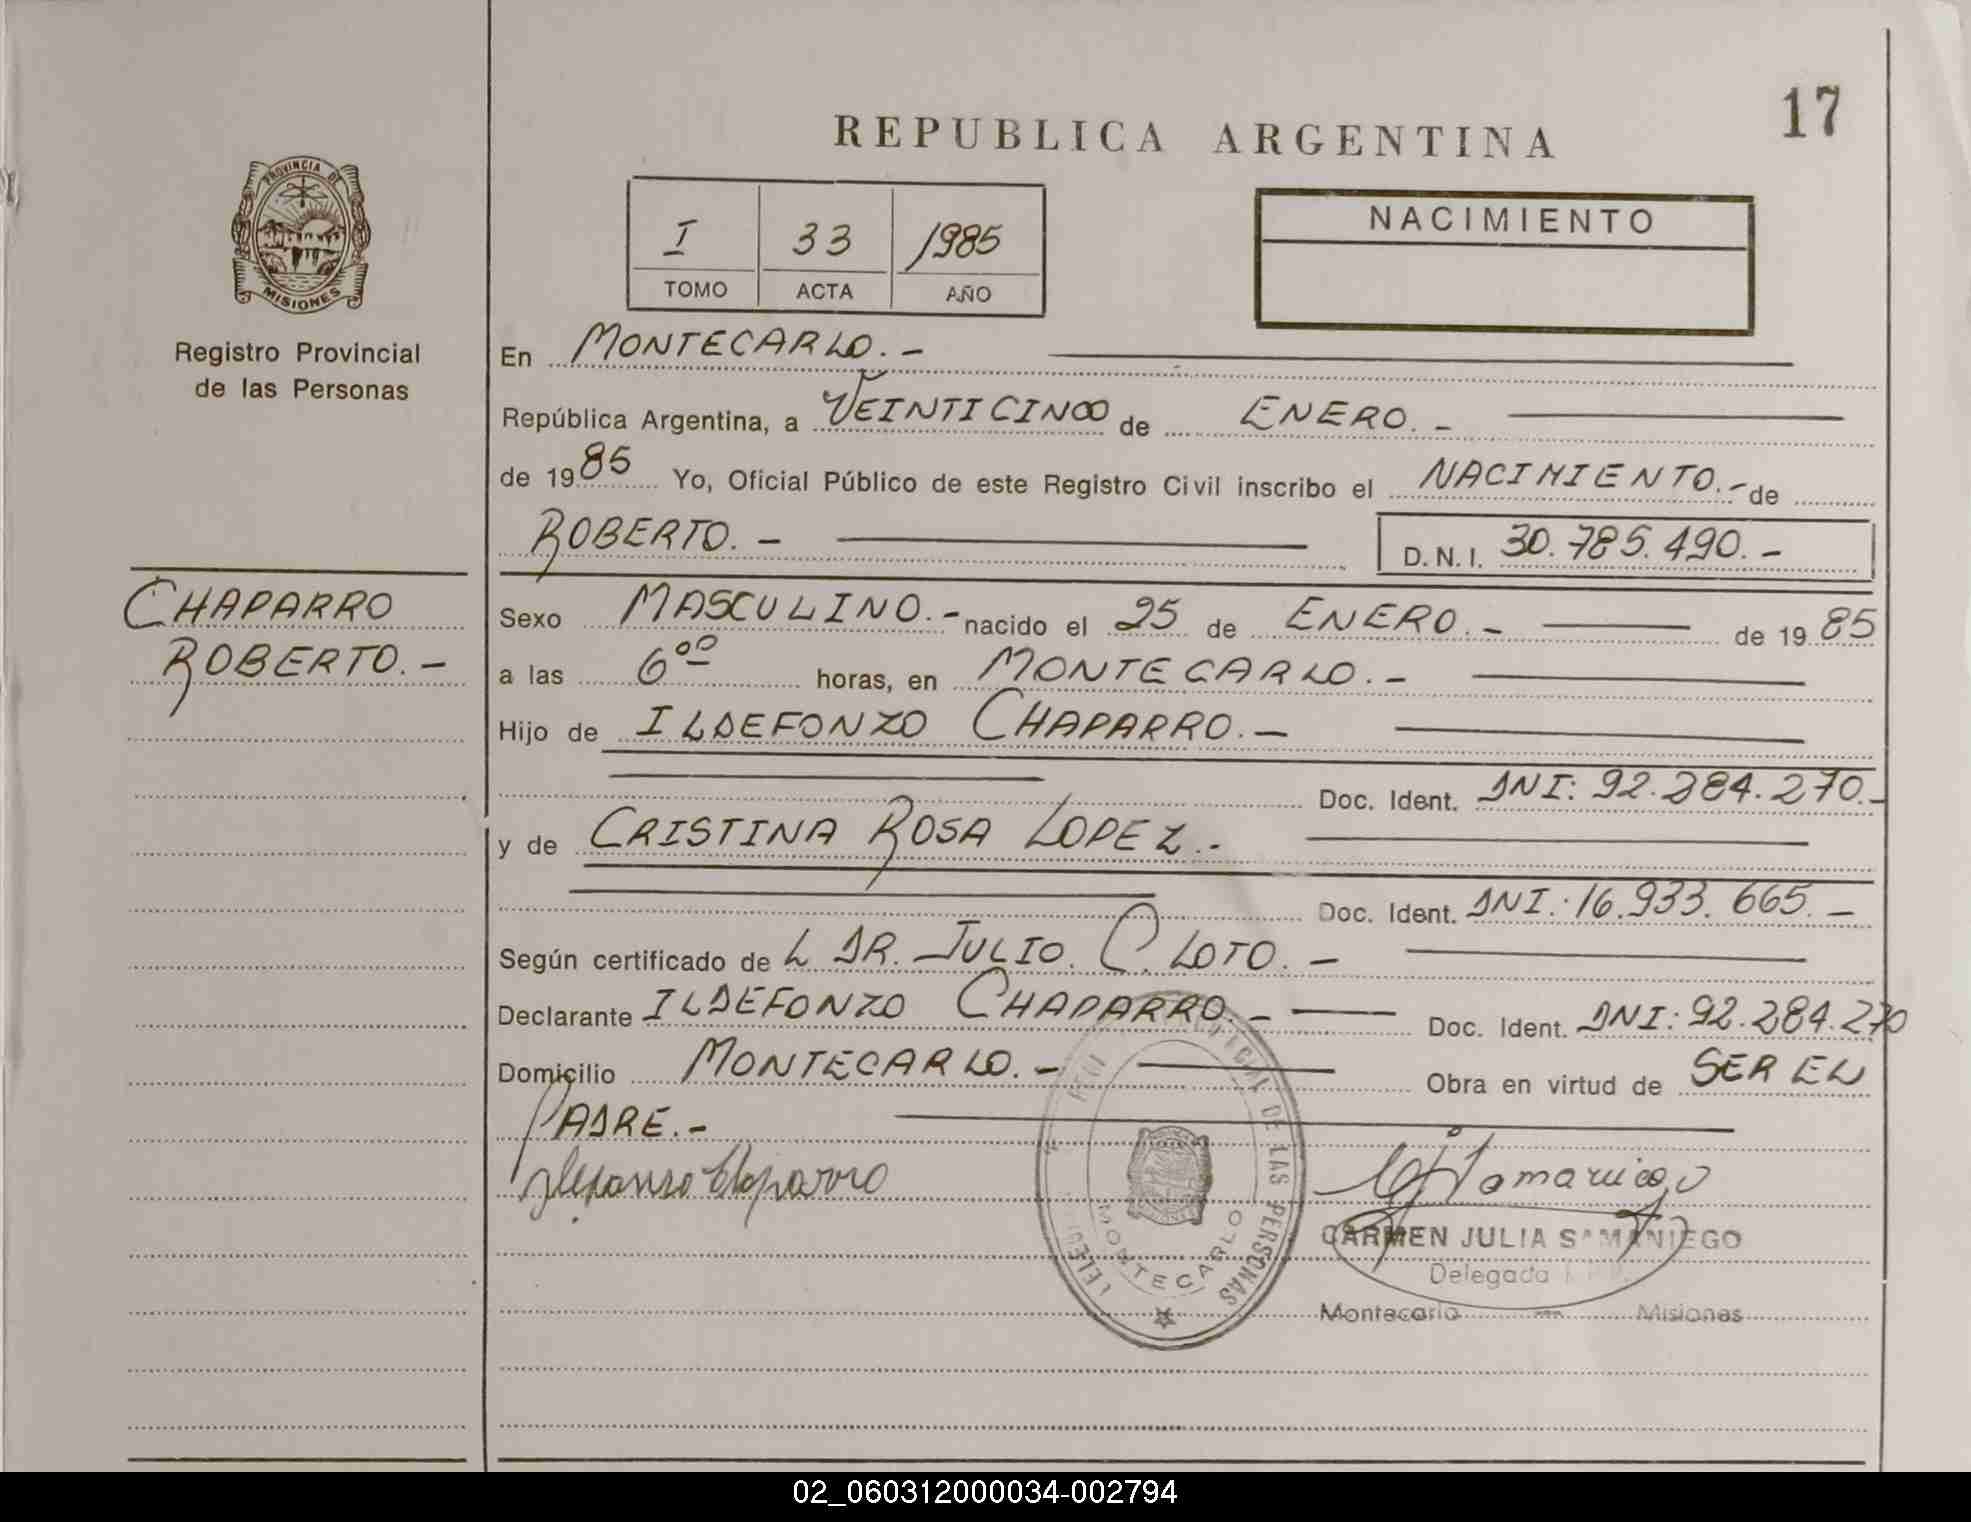 17
REPUBLICA ARGENTINA
PROVINCIA DE
MISIONES
Registro Provincial
de las Personas
I 33 1985
TOMO ACTA AÑO
NACIMIENTO
En MONTECARLO.-
República Argentina, a VEINTICINCO de ENERO.-
de 1985 Yo, Oficial Público de este Registro Civil inscribo el NACIMIENTO.- de
ROBERTO.- D.N.I. 30.785.490.-
CHAPARRO
ROBERTO.-
Sexo MASCULINO.- nacido el 25 de ENERO.- de 1985
a las 6⁰⁰ horas, en MONTECARLO.-
Hijo de ILDEFONZO CHAPARRO.-
Doc. Ident. DNI: 92.284.270.-
y de CRISTINA ROSA LOPEZ.-
Doc. Ident. DNI: 16.933.665.-
Según certificado de L DR. JULIO. C. LOTO.-
Declarante ILDEFONZO CHAPARRO.- Doc. Ident. DNI: 92.284.270
Domicilio MONTECARLO.- Obra en virtud de SER EL
PADRE.-
Ildefonso Chaparro
DE LAS PERSONAS
MONTECARLO
CARMEN JULIA SAMANIEGO
Delegada
Montecarlo - Misiones
02_060312000034-002794